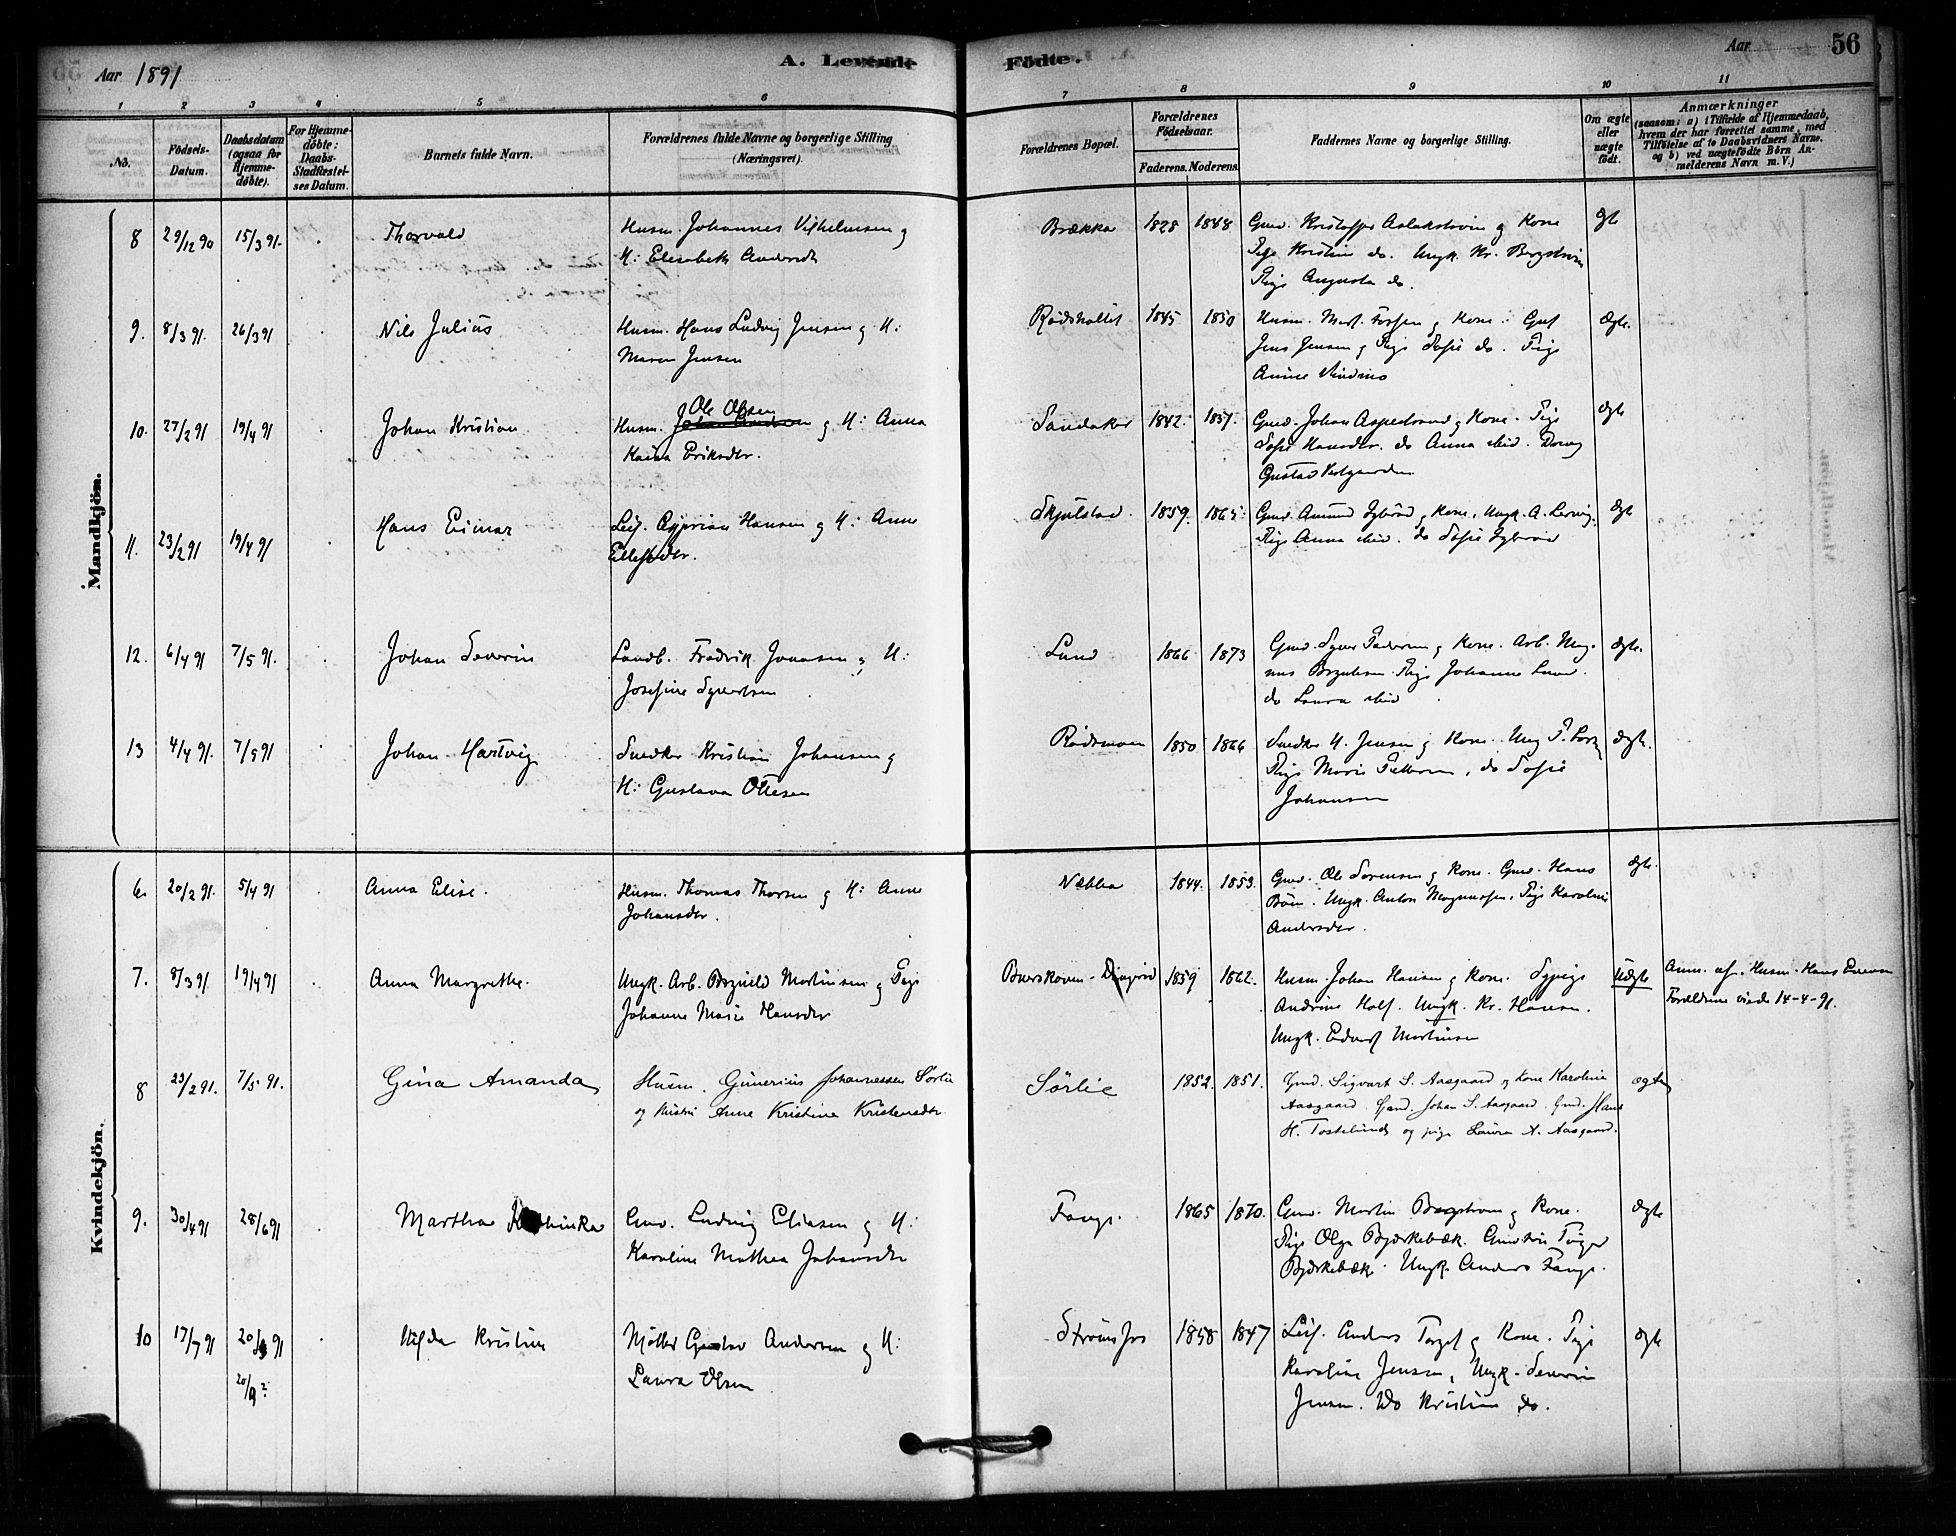 Aar 1891
A. Levende
Fødte.
Aar
56
1 2 3 4 5 6 7 8 9 10 11
No.
Födsels-
Datum.
Daabsdatum
(ogsaa for
Hjemme-
døbte).
For Hjemme-
døbte:
Daabs-
Stadfæstel-
ses Datum.
Barnets fulde Navn.
Forældrenes fulde Navne og borgerlige Stilling
(Næringsvei).
Forældrenes Bopæl.
Forældrenes
Födselsaar.
Faderens. Moderens.
Faddernes Navne og borgerlige Stilling.
Om ægte
eller
uægte
født.
Anmærkninger
(saasom: a) i Tilfælde af Hjemmedaab,
hvem der har forrettet samme, med
Tilföielse af to Daabsvidners Navne,
og b) ved uægtefödte Börn An-
melderens Navn m. V.)
Mandkjön.
8 29/12 90 15/3 91. Thorvald Husm. Johannes Vilhelmsen og Brækka 1828 1848 Gmd. Kristoffer og Kone ægte
H: Elisabeth Andersdt Pige Kristine do. Ungk. Kr.
Pige Augusta do.
9. 8/3 91. 26/3 91 Nils Julius Husm. Hans Ludvig Jensen og H: 1845 1850 Husm. og Kone. ægte.
Maren Jensen Jens Jensen og Pige Sofie do. Pige
10. 27/2 91 19/4 91 Johan Kristian Husm. Ole Olsen og H: Anna Sandaker 1842. 1857. Gmd. Johan Aspestrand og Kone. Pige ægte
Kaisa Eriksdtr. Sofie Hansdtr. do Anna ibid.
Gustav
11. 23/2 91 19/4 91 Hans Einar Leif. Cyprian Hansen og H: Anne Skjulstad. 1859. 1865. Gmd. Amund og Kone. Ungk. A. ægte
Pige Anna ibid. do Sofie
12. 6/4 91 7/5 91. Johan Severin Landb. Fredrik Jonasen og H: Lund 1866 1873 Gmd. og Kone. Arb. Mag- ægte.
Josefine Syvertsen nus Pige Johanne Lund.
do Laura ibid
13 4/4 91. 7/5 91 Johan Hartvig Snedker Kristian Johansen og 1850 1866 Snedker H. Jensen og Kone. ægte.
H: Gustava Ottesen Pige Marie do Sofie
Johansen
Kvindekjön.
6. 20/2 91. 5/4 91 Anna Elise. Husm. Thomas Thorsen og H: Anne Næbba 1844. 1853. Gmd. Ole Sørensen og Kone. Gmd. Hans ægte.
Johansdtr. Ungk. Anton Magnussen. Pige Karoline
Andersdtr.
7. 8/3 91. 19/4 91 Anna Margrethe. Ungk. Arb. Martinsen og Pige 1859 1862. Husm. Johan Hansen og Kone. Sypige Uægte Anm. af Husm. Hans
Johanne Marie Hansdtr Andrine Ungk. Kr. Hansen. Forældrene viede 14-4-91.
Ungk. Edvart Martinsen
8 23/2 91. 7/5 91. Gina Amanda Husm. Gunerius Johannessen Sørlie Sørlie 1852. 1851. Gmd. Sigvart S. Aasgaard og Kone Karoline ægte
og Hustru Anne Kristine Kristensdtr. Aasgaard. Gmd. Johan S. Aasgaard. Gmd. Hans
H. Tostelunds og pige Laura A. Aasgaard.
9. 30/4 91 28/6 91 Martha Gmd. Ludvig Eliasen og H: Fange. 1865 1870. Gmd. Martin og Kone. ægte
Karoline Mathea Johansdtr Pige Olga Bjørkebæk.
Bjørkebæk. Ungk. Anders Fange.
10 17/7 91 20/ 91 Hilda Kristine Møller Gustav Andersen og H: Strømsfos 1858 1847 Leif. Anders og Kone. Pige ægte
20/9? Laura Olsen Karoline Jensen, Ungk. Severin
Jensen. do Kristian do.